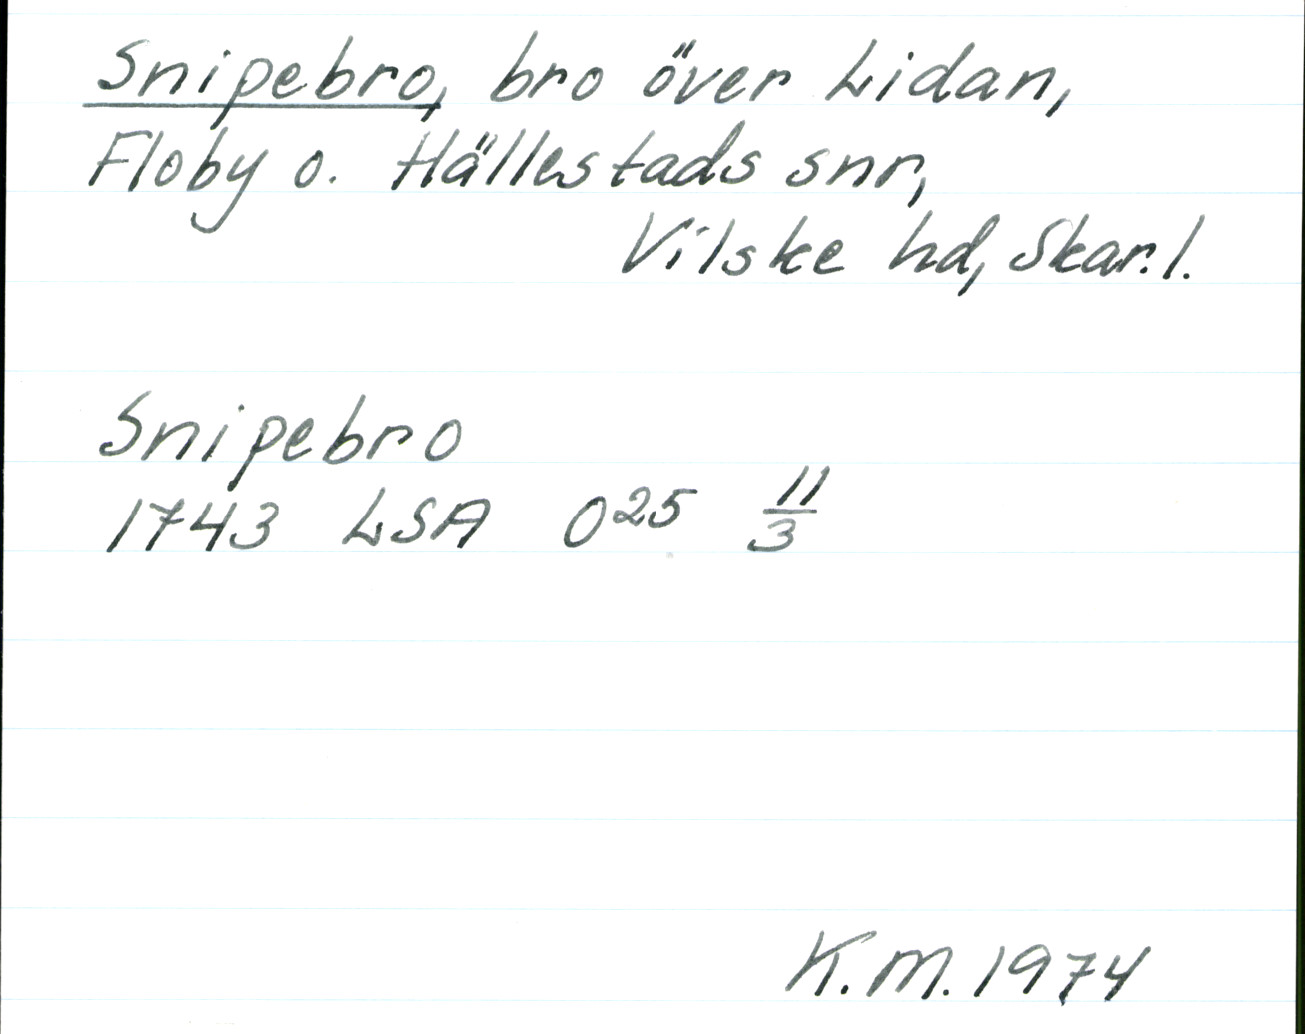 Snipebro, bro över Lidan,
Floby o. Hällestads snr,
Vilske hd, Skar.l.
Snipebro
1743 LSA O25 11/3
K.M. 1974